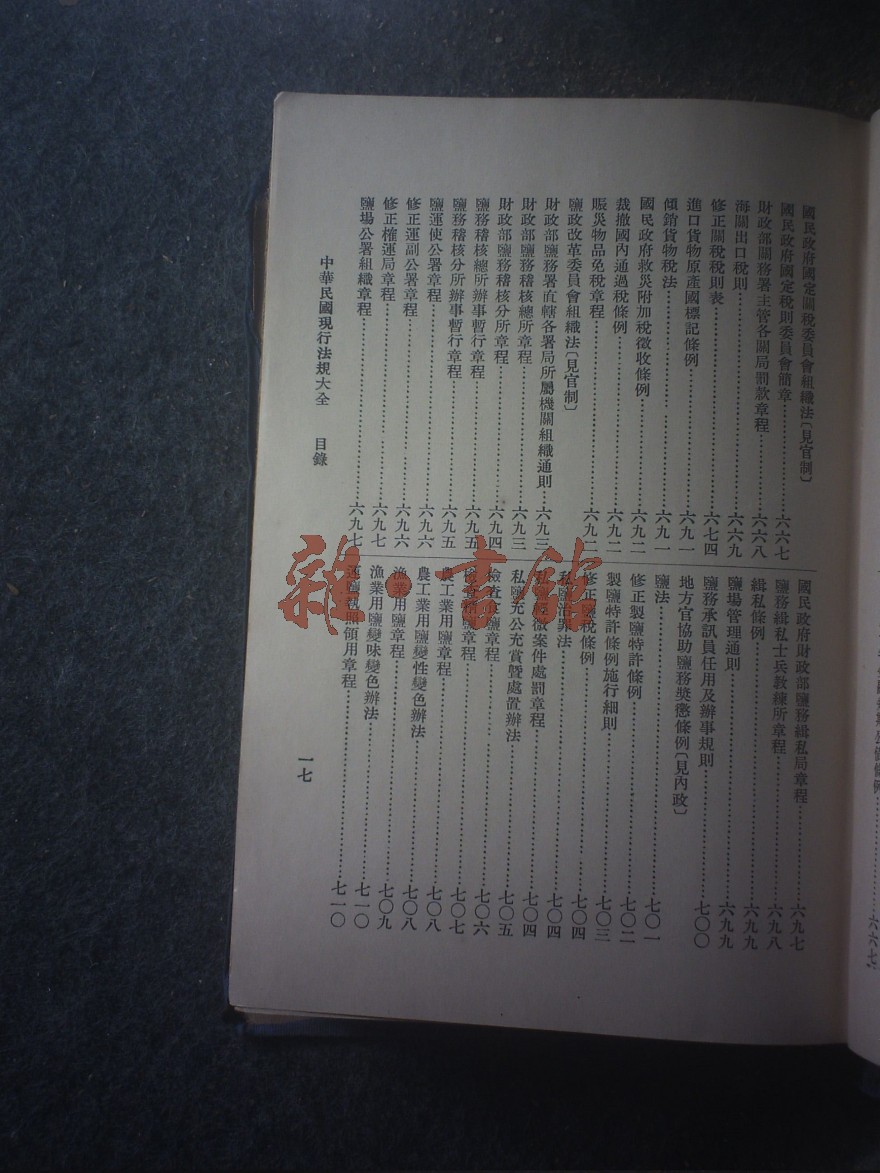 國民政府國定關稅委員會組織法〔見官制〕
國民政府國定稅則委員會簡章……六六七
財政部關務署主管各關局罰款章程……六六八
海關出口稅則……六六九
修正關稅稅則表……六七四
進口貨物原產國標記條例……六九一
傾銷貨物稅法……六九一
國民政府救災附加稅徵收條例……六九二
裁撤國內通過稅條例……六九二
賑災物品免稅章程……六九二
鹽政改革委員會組織法〔見官制〕
財政部鹽務署直轄各署局所屬機關組織通則……六九三
財政部鹽務稽核總所章程……六九三
財政部鹽務稽核分所章程……六九四
鹽務稽核總所辦事暫行章程……六九五
鹽務稽核分所辦事暫行章程……六九五
鹽運使公署章程……六九六
修正運副公署章程……六九六
修正榷運局章程……六九七
鹽場公署組織章程……六九七
國民政府財政部鹽務緝私局章程……六九七
鹽務緝私士兵教練所章程……六九八
緝私條例……六九九
鹽場管理通則……六九九
鹽務承訊員任用及辦事規則……七〇〇
地方官協助鹽務獎懲條例〔見內政〕
鹽法……七〇一
修正製鹽特許條例……七〇二
製鹽特許條例施行細則……七〇三
修正鹽稅條例……七〇四
私鹽治罪法……七〇四
私鹽輕微案件處罰章程……七〇四
私鹽充公充賞暨處置辦法……七〇五
檢查食鹽章程……七〇六
檢查精鹽章程……七〇七
農工業用鹽章程……七〇八
農工業用鹽變性變色辦法……七〇八
漁業用鹽章程……七〇九
漁業用鹽變味變色辦法……七一〇
運鹽執照領用章程……七一〇
中華民國現行法規大全 目錄
一七
雜·書館
六六七